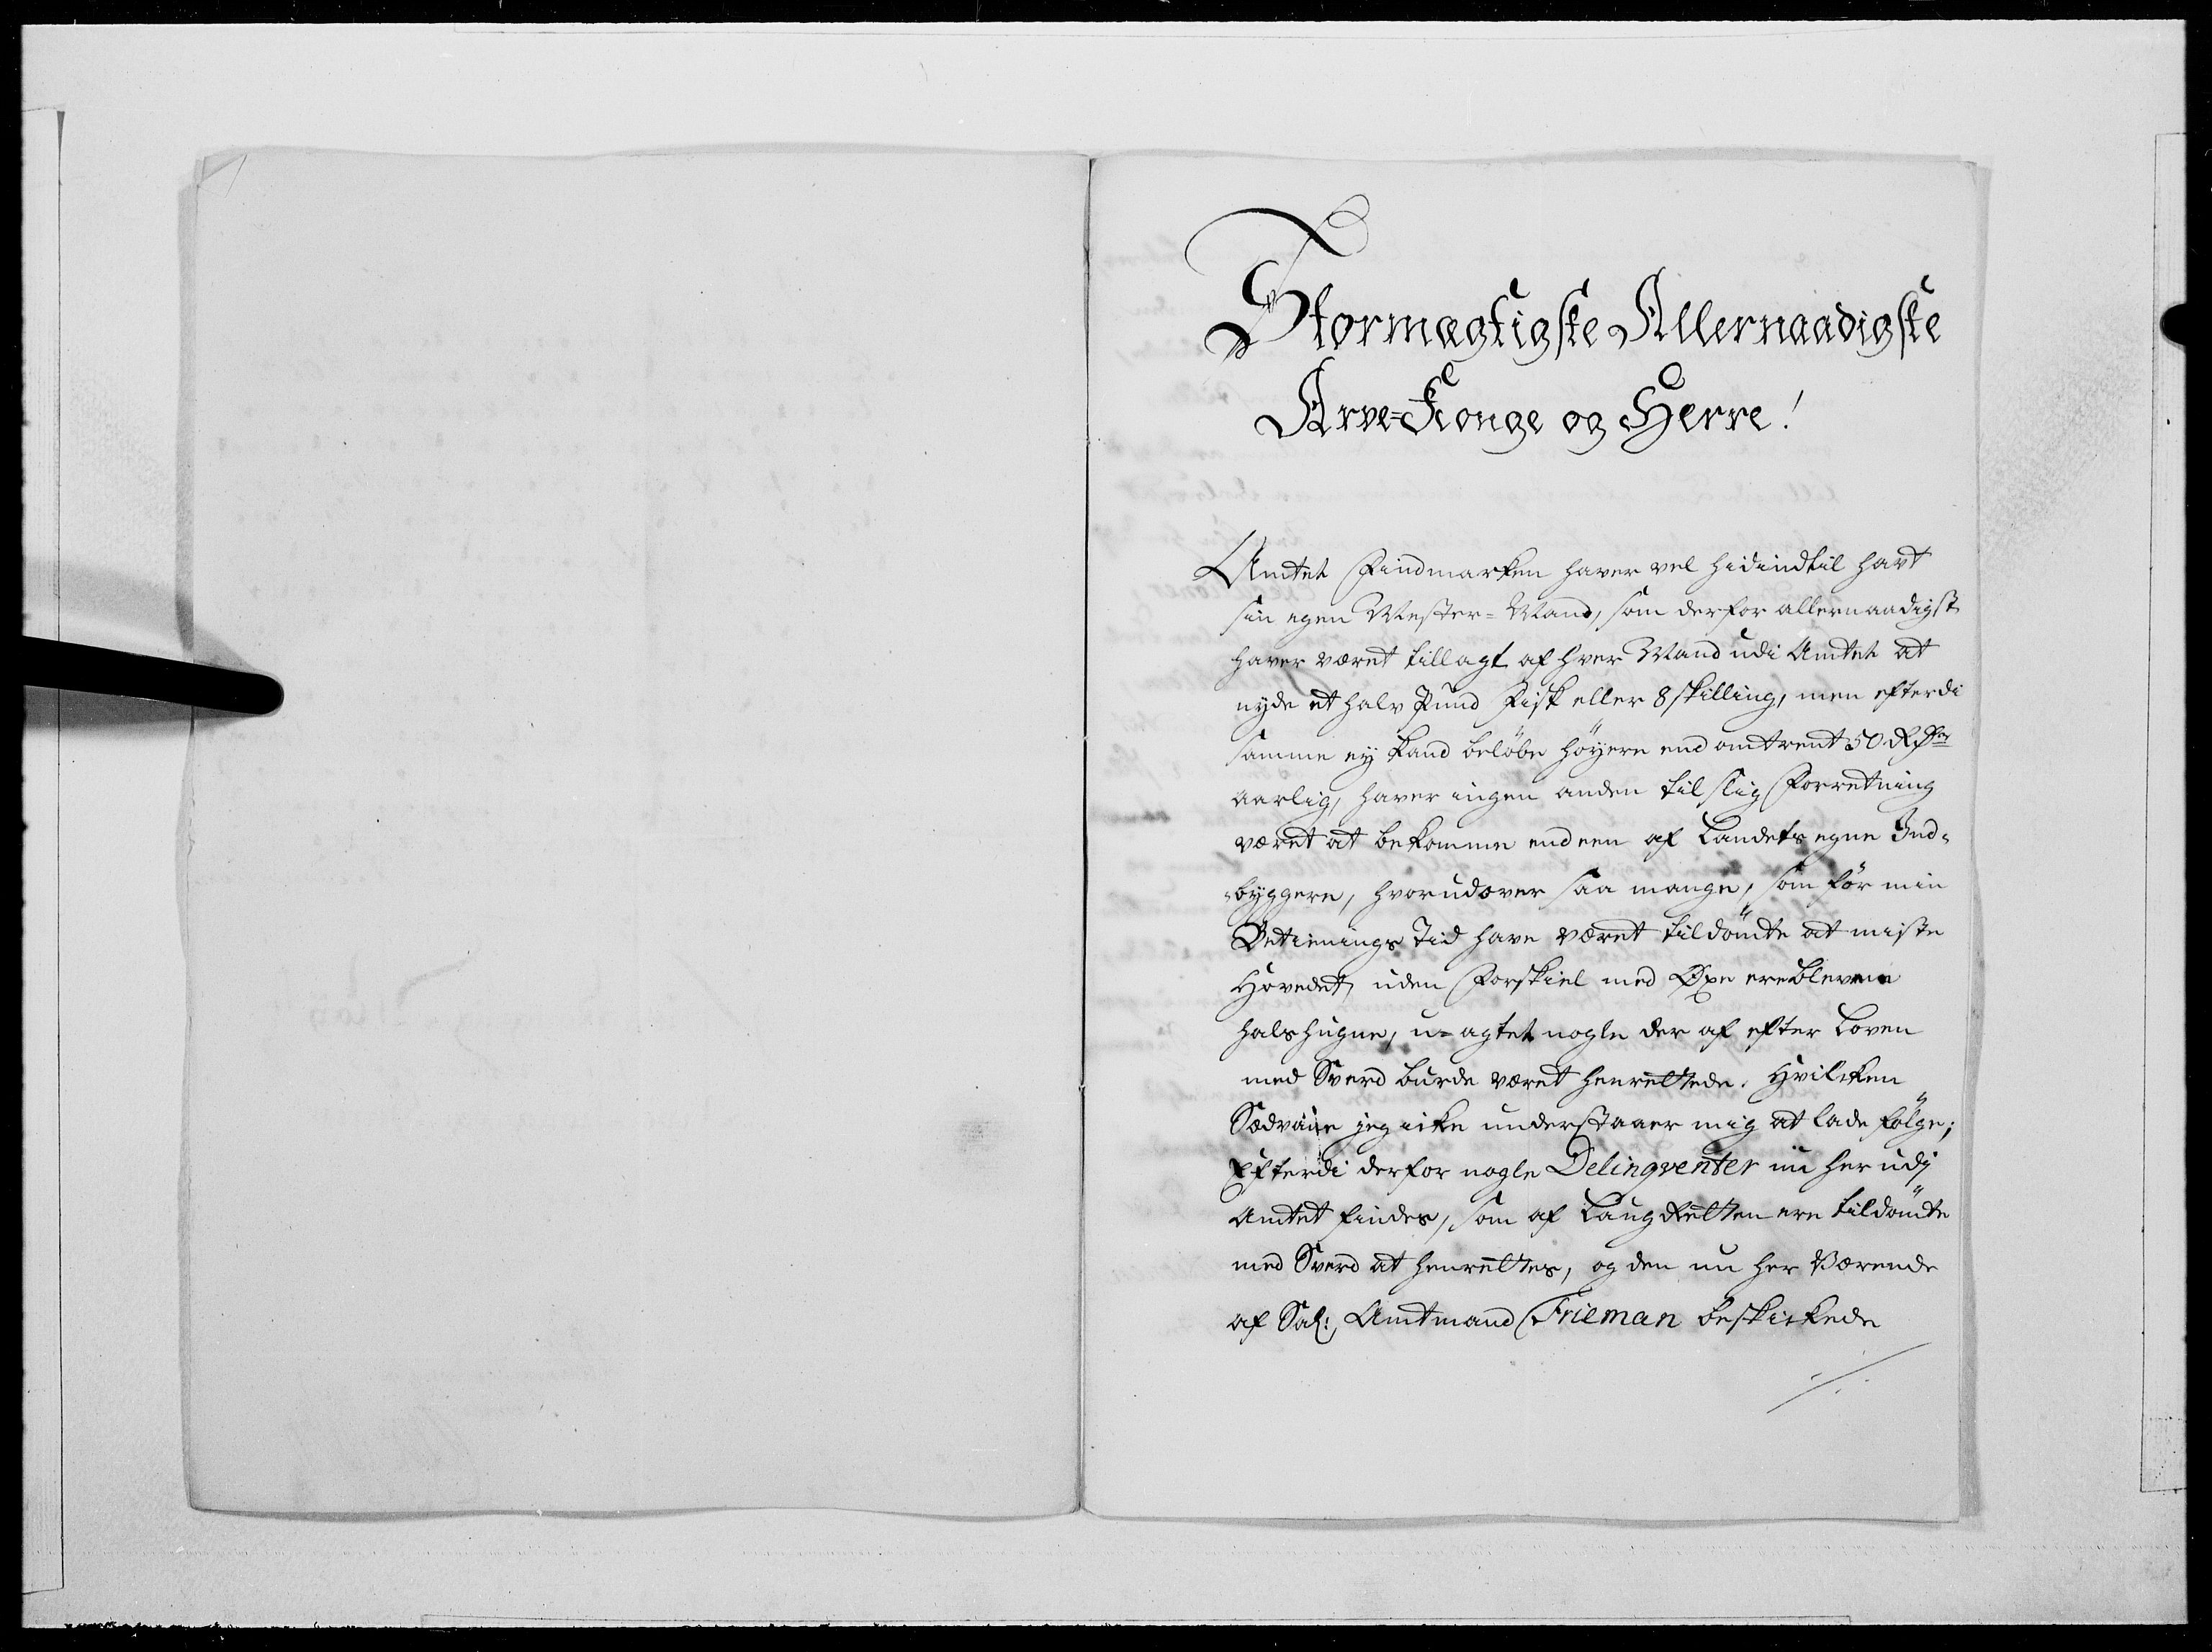 Stormægtigste Allernaadigste
Arve-Konge og Herre!
Amtet Findmarken haver vel hidindtil havt
sin egen Mester-Mand, som derfor allernaadigst
haver været tillagt af hver Mand udi Amtet at
nyde et halv Pund Fisk eller 8 skilling, men efterdi
samme ey kand beløbe höyere end omtrent 50 Rdr
aarlig, haver ingen anden til slig Forretning
været at bekomme end een af Landets egne Ind-
-byggere, hvorudover saa mange, som för min
Betienings Tid have været tildömte at miste
Hovedet, uden Forskiel med Øxe ere blevne
halshugne, u-agtet nogle der af efter Loven
med Sverd burde været henrettede. Hvilcken
Sædvane jeg icke understaaer mig at lade fölge;
Efterdi derfor nogle Delinqventer nu her udj
Amtet findes, som af Laug Retten ere tildömte
med Sverd at henrettes, og den nu her Værende
af Sal: Amtmand Frieman beskickede
./.